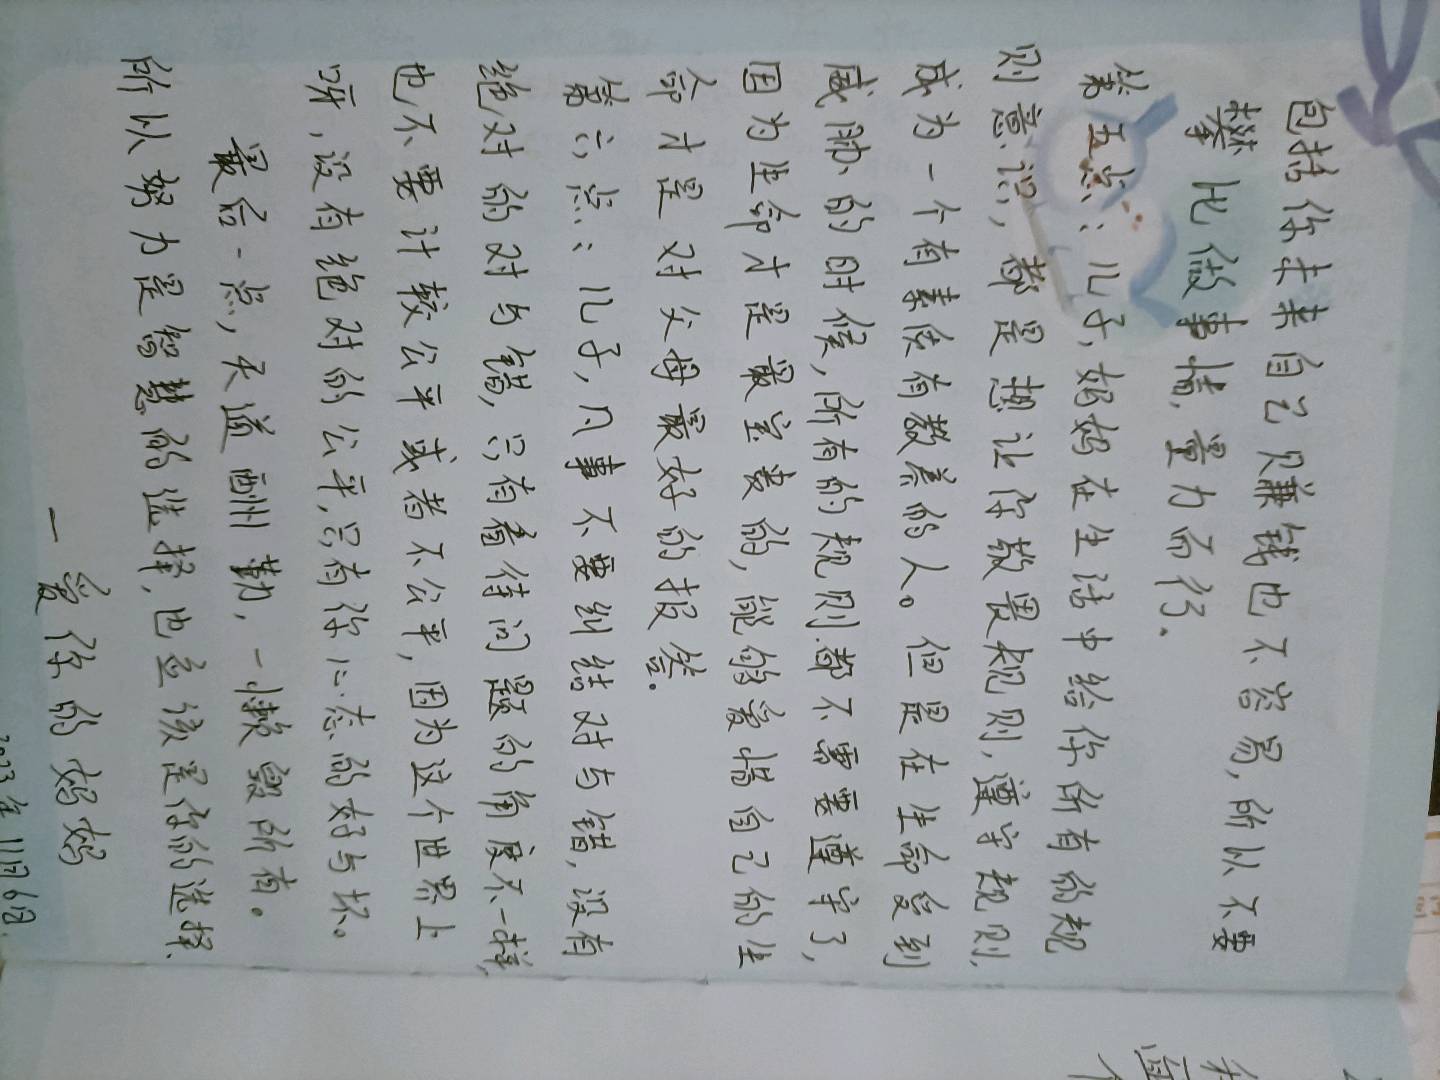 包括你未来自己赚钱也不容易,所以不要
攀比做事情,量力而行。
第五点:儿子,妈妈在生活中给你所有的规
则意识,都是想让你敬畏规则,遵守规则,
成为一个有素质有教养的人。但是在生命受到
威胁的时候,所有的规则都不需要遵守了,
因为生命才是最宝贵的,能够爱惜自己的生
命才是对父母最好的报答。
第六点:儿子,凡事不要纠结对与错,没有
绝对的对与错,只有看待问题的角度不一样,
也不要计较公平或者不公平,因为这个世界上
呀,没有绝对的公平,只有你心态的好与坏。
最后一点,天道酬勤,一懒毁所有。
所以努力是智慧的选择,也应该是你的选择.
一爱你的妈妈
2023年11月6日.